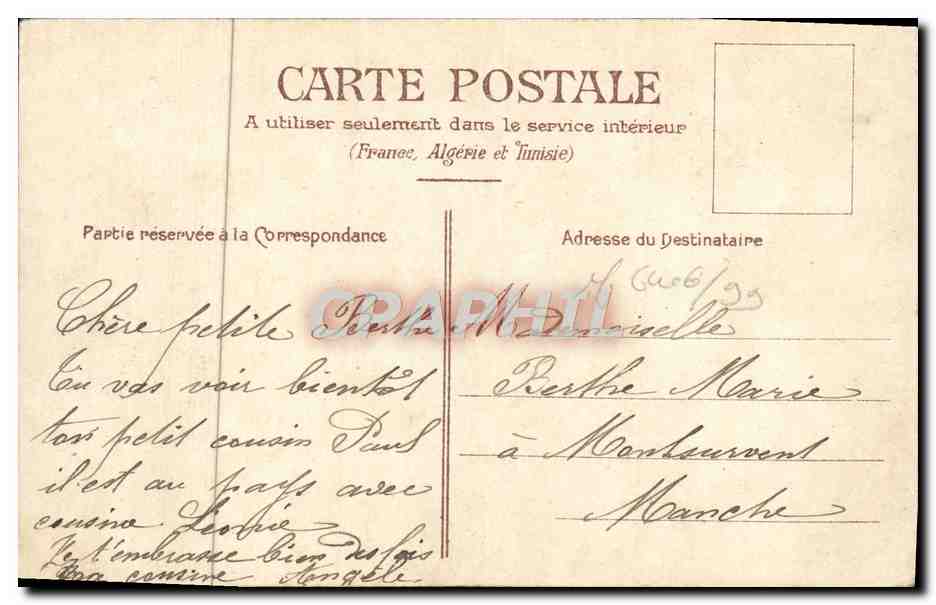 CARTE POSTALE
A utiliser seulement dans le service intérieur
(France, Algérie et Tunisie)
Partie réservée à la Correspondance
Chère petite Berthe
Tu vas voir bientôt
ton petit cousin Paul
il est au pays avec
cousine Léonie
Je t'embrasse bien des fois
cousine Angèle
Adresse du Destinataire
Mademoiselle
Berthe Marie
à Montsurvent
Manche
CPAPHIL